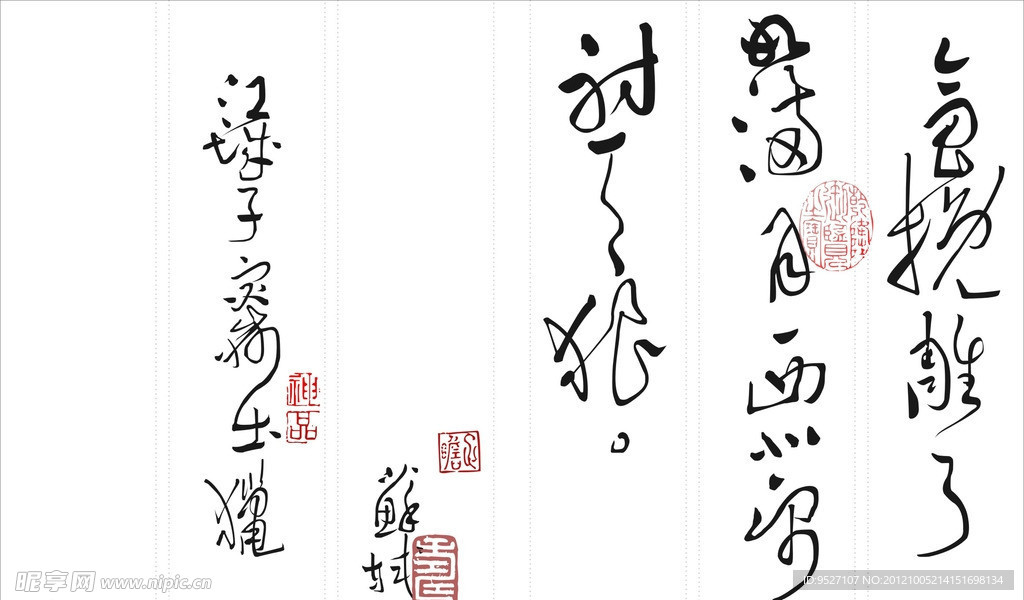 會挽雕弓
如滿月西北望
射天狼。
蘇軾
江城子密州出獵
乾隆御覽之寶
神品
子瞻
昵享网 www.nipic.cn
ID:9527107 NO:20121005214151698134